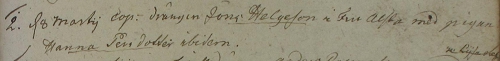 2. d 8 Martij cop: drängen Jöns Helgeson i med pigan
Hanna Persdotter ibidem.